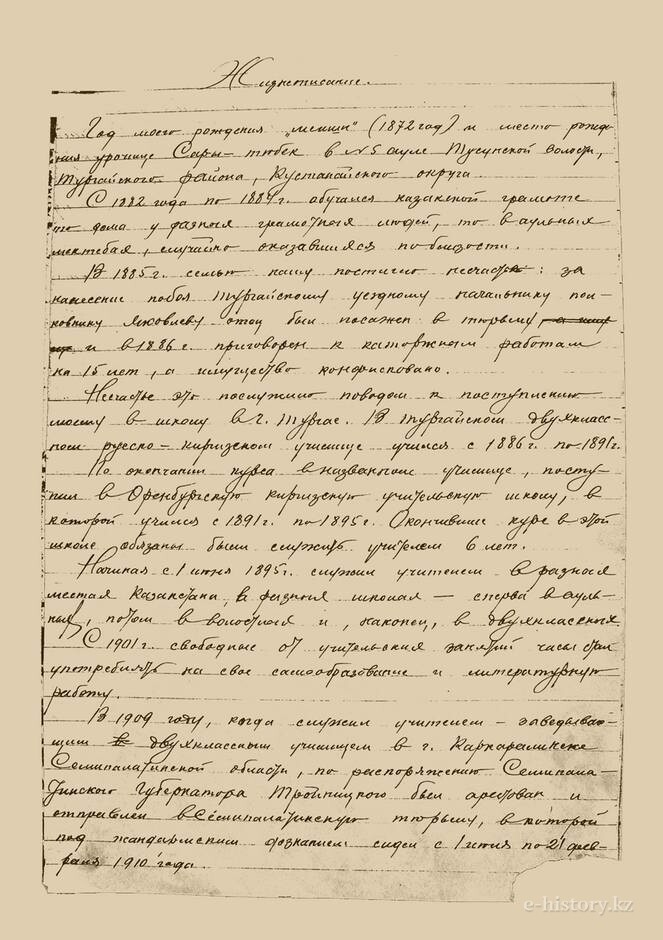 Жизнеописание.
Год моего рождения „мешин“ (1872 год) и место рожде-
ния урочище Сары-тюбек в №5 ауле Тусунской волости,
Тургайского района, Кустанайского округа.
С 1882 года по 1884 г. обучался казакской грамоте
то дома у разных грамотных людей, то в аульных
мектебах, случайно оказавшихся поблизости.
В 1885 г. семью нашу постигло несчастье: за
нанесение побоя Тургайскому уездному начальнику пол-
ковнику Яковлеву отец был посажен в тюрьму
и в 1886 г. приговорен к каторжным работам
на 15 лет, а имущество конфисковано.
Несчастье это послужило поводом к поступлению
моему в школу в г. Тургае. В Тургайском двухкласс-
ном русско-киргизском училище учился с 1886 г. по 1891 г.
По окончании курса в названном училище, посту-
пил в Оренбургскую киргизскую учительскую школу, в
которой учился с 1891 г. по 1895 г. Окончившие курс в этой
школе обязаны были служить учителем 6 лет.
Начиная с 1 июня 1895 г. служил учителем в разных
местах Казакстана, в разных школах – сперва в ауль-
ных, потом в волостных и, наконец, в двухклассных.
С 1901 г. свободные от учительских занятий часы стал
употреблять на свое самообразование и литературную
работу.
В 1909 году, когда служил учителем – заведываю-
щим двухклассным училищем в г. Каркаралинске
Семипалатинской области, по распоряжению Семипала-
тинского Губернатора Тройницкого был арестован и
отправлен в Семипалатинскую тюрьму, в которой
под жандармским дознанием сидел с 1 июля по 21 фев-
раля 1910 года.
e-history.kz